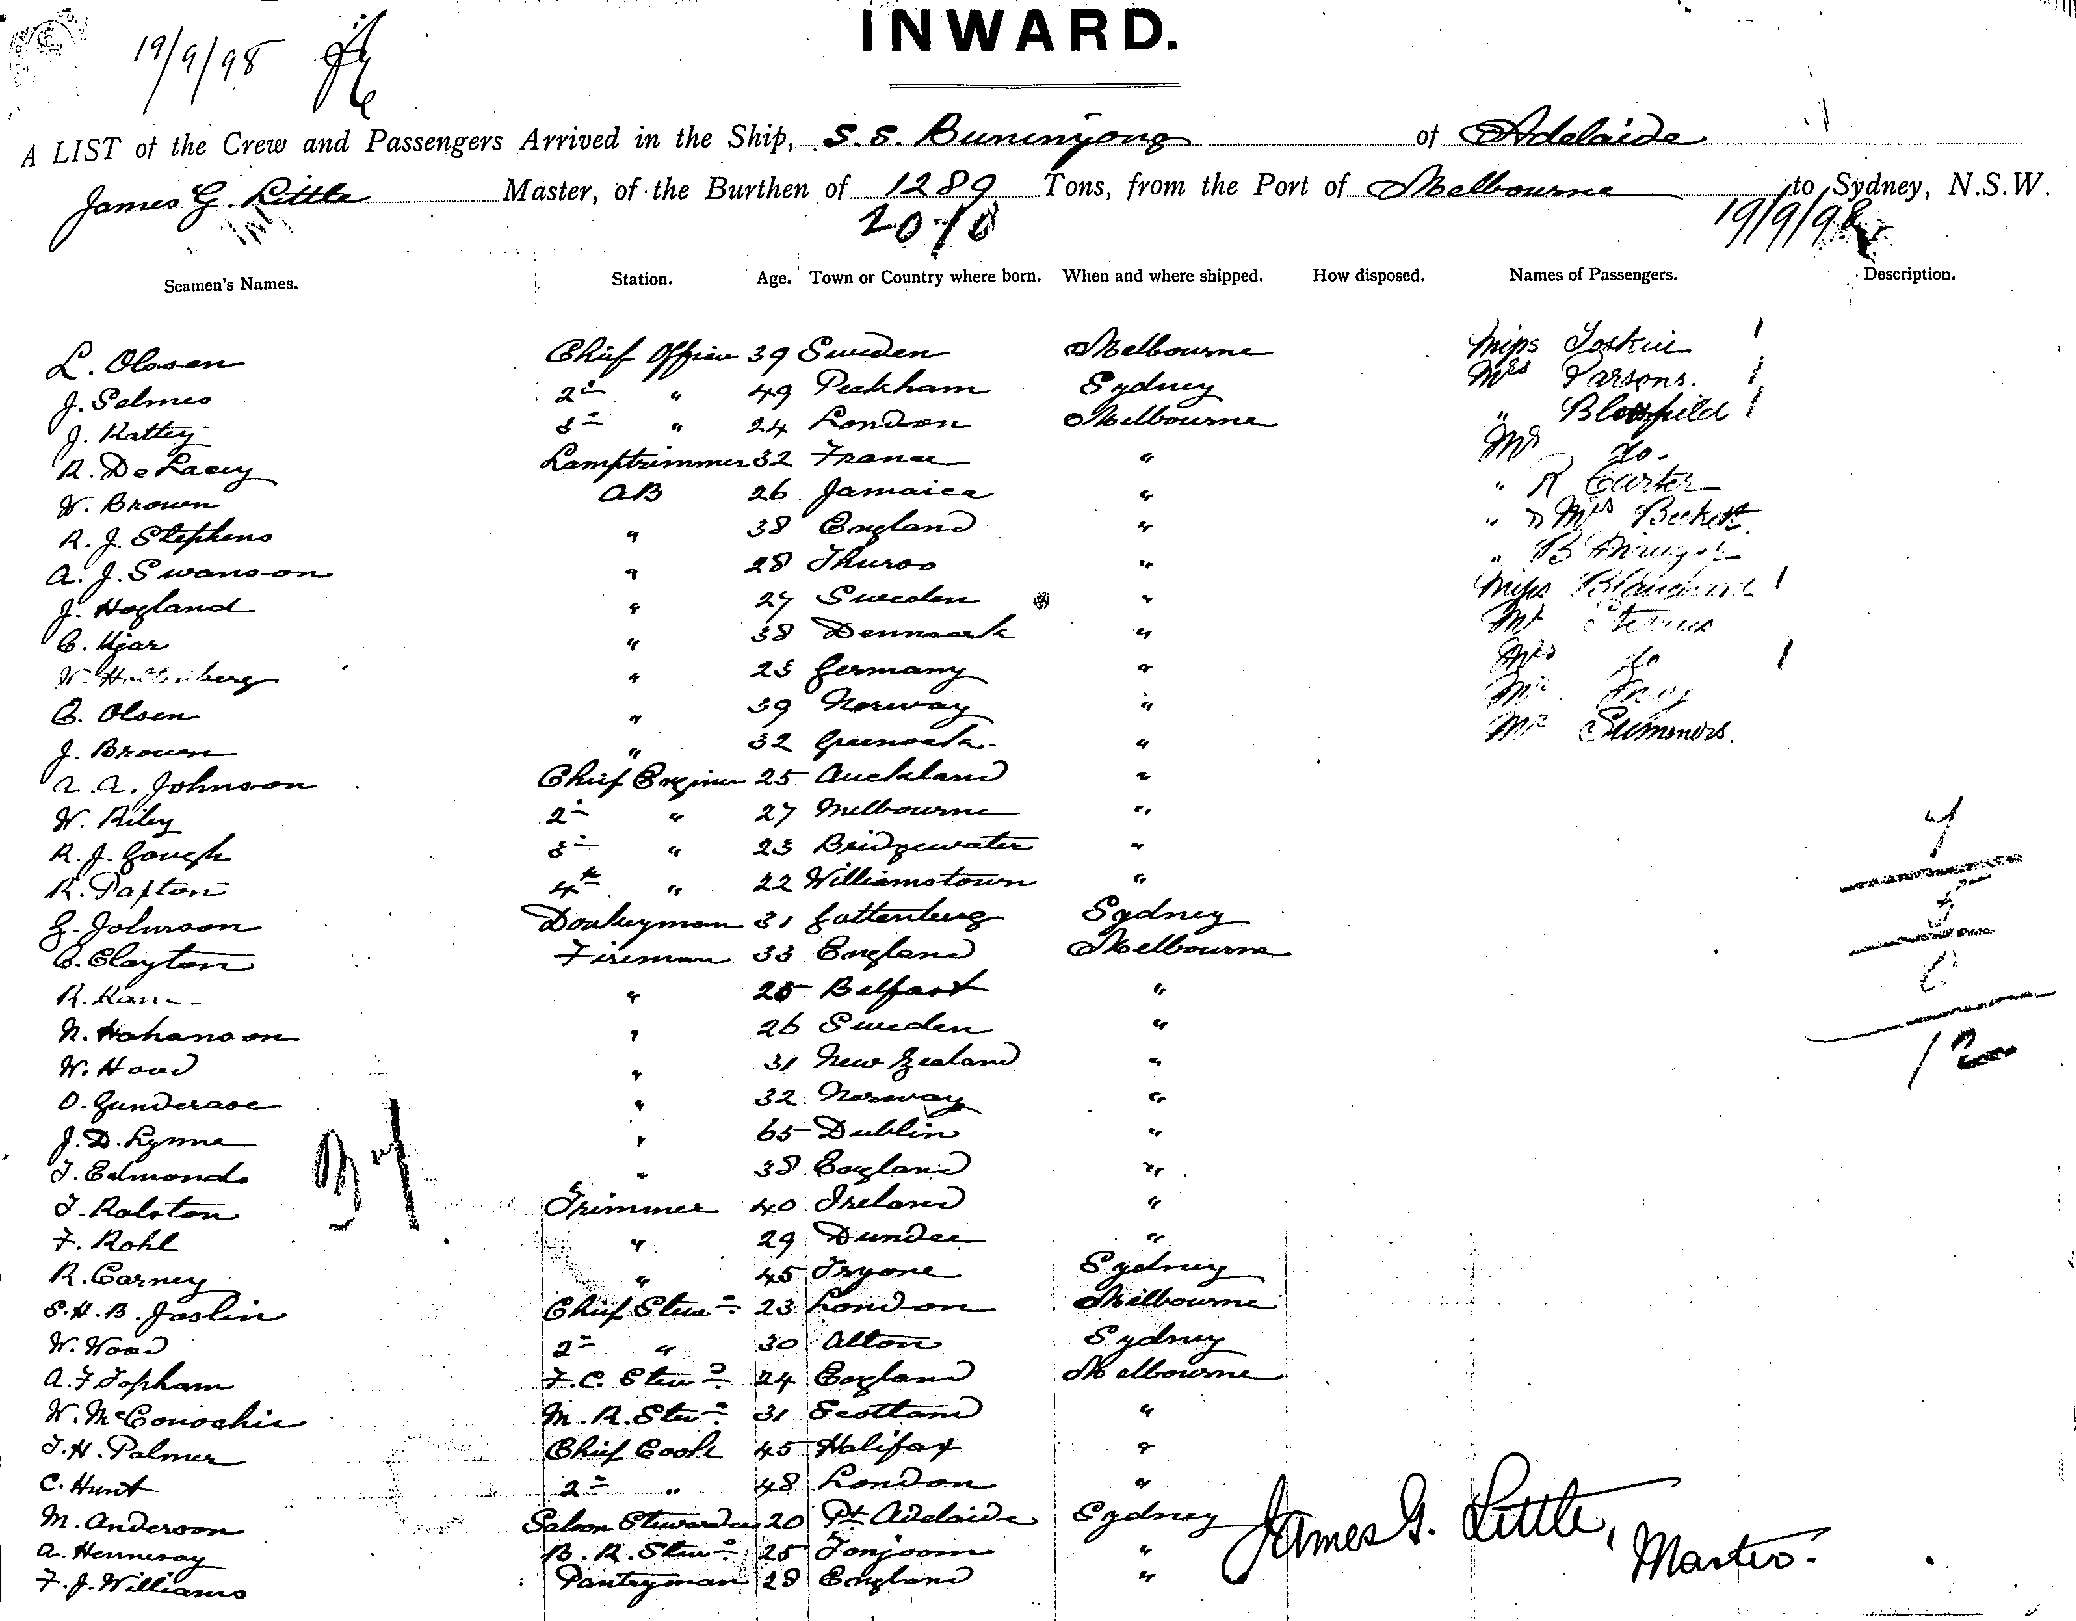 INWARD.
19/9/98
A LIST of the Crew and Passengers Arrived in the Ship, S.S. Buninyong of Adelaide
James G. Little Master, of the Burthen of 1289 Tons, from the Port of Melbourne to Sydney, N.S.W.
19/9/98
Seamen's Names. Station. Age. Town or Country where born. When and where shipped. How disposed. Names of Passengers. Description.
L. Olssen Chief Officer 39 Sweden Melbourne Miss
J. Selmes 2nd " 49 Peckham Sydney Mrs Parsons. 1
J. Rattey 3rd " 24 London Melbourne " Blomfield 1
R. De Lacey Lamptrimmer 32 France " Mr Do.
W. Brown AB 26 Jamaica " " R Carter
R. J. Stephens " 38 England " " & Mrs Beckett
A. J. Swanson " 28 Thurso " "
J. Hogland " 27 Sweden " Miss Blanchard 1
C. Kjar " 38 Denmark " Mr
W. " 23 Germany " Mrs Do 1
C. Olsen " 39 Norway " Mr
J. Brown " 32 Greenock " Mr Summers.
A. A. Johnson Chief Engineer 25 Auckland "
W. Riley 2nd " 27 Melbourne "
R. J. Gough 3rd " 23 Bridgewater "
R. Paxton 4th " 22 Williamstown "
G. Johnson Donkeyman 31 Gottenburg Sydney
C. Clayton Fireman 33 England Melbourne
R. " 25 Belfast "
N. Hohanson " 26 Sweden "
W. Hood " 31 New Zealand "
O. Gunderson " 32 Norway "
J. D. Lynne " 65 Dublin "
T. Edmonds " 38 England "
T. Ralston Trimmer 40 Ireland "
F. Rohl " 29 Dundee "
R. Carney " 45 Tryone Sydney
S. H. B. Joslin Chief Stewd 23 London Melbourne
W. Wood 2nd " 30 Alton Sydney
A. F Topham F. C. Stewd 24 England Melbourne
W. McConochie M. R. Stewd 31 Scotland "
T. H. Palmer Chief Cook 45 Halifax "
C. Hunt 2nd " 48 London "
M. Anderson Saloon Stewardess 20 Pt Adelaide Sydney
A. Hennessy B. R. Stewd 25 "
F. J. Williams Pantryman 28 England "
12
James G. Little,
Master.